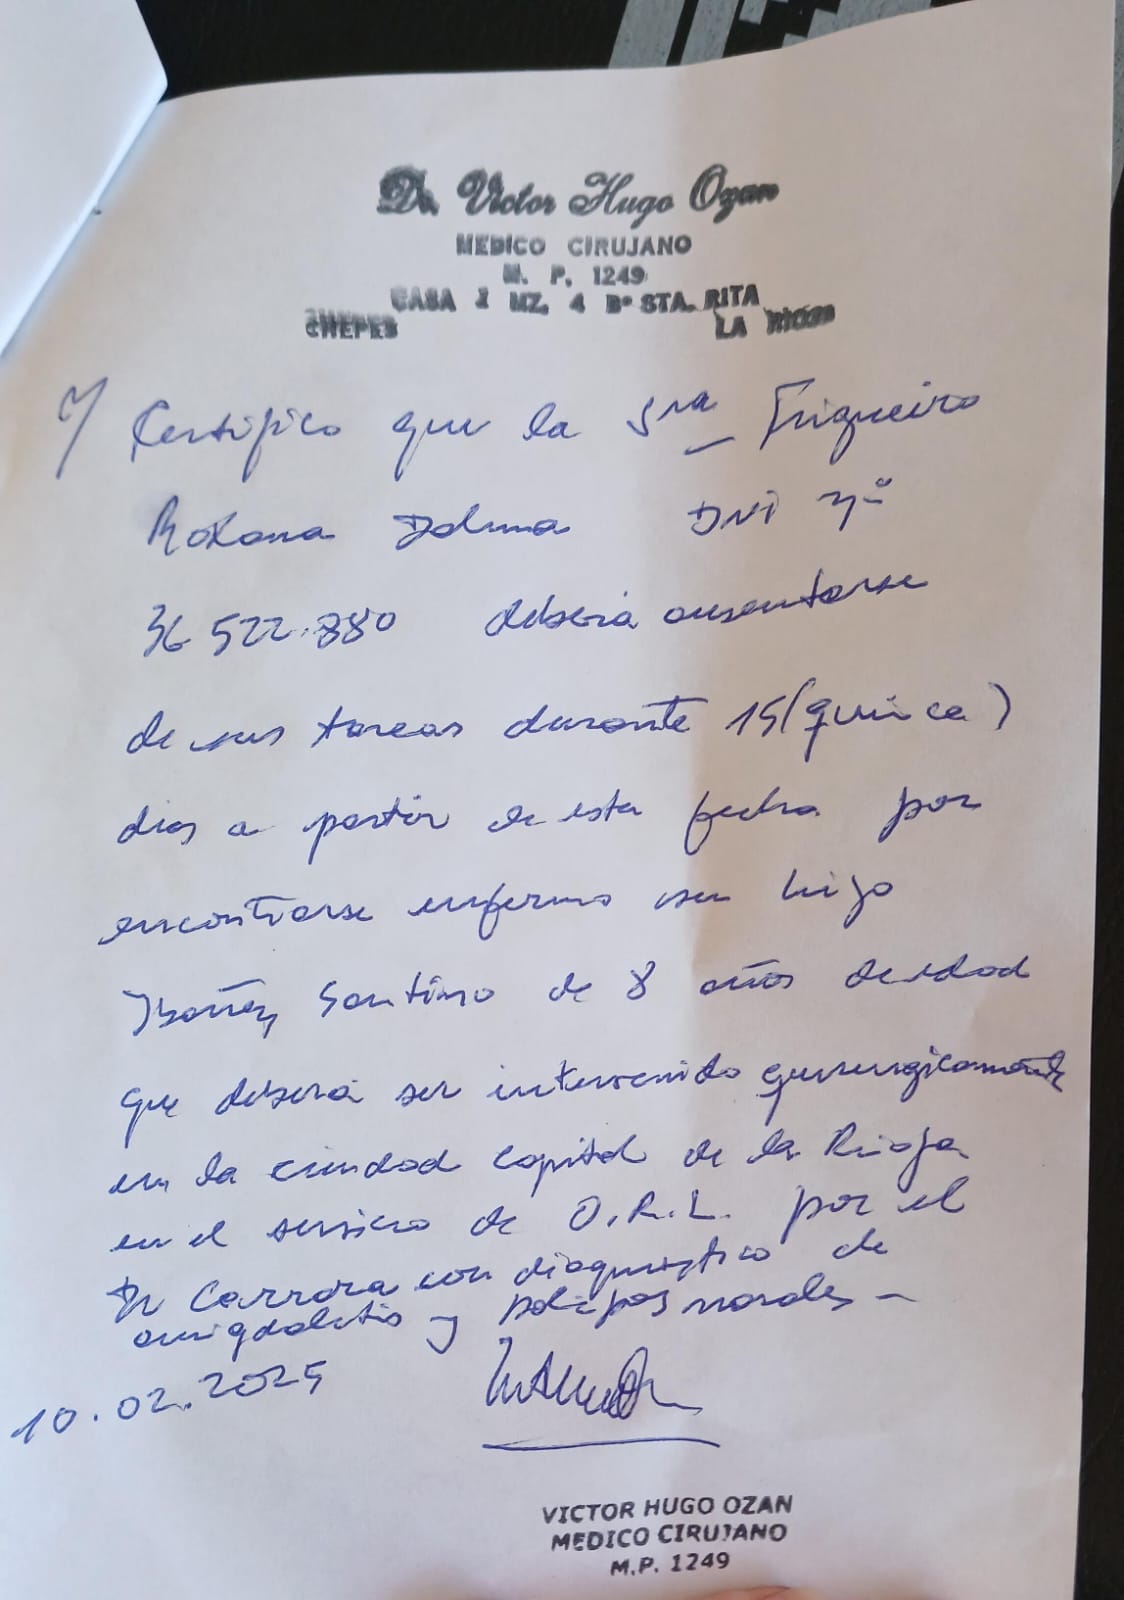 Dr. Victor Hugo Ozan
MEDICO CIRUJANO
M. P. 1249
CASA 1 MZ. 4 Bº STA. RITA
CHEPES LA RIOJA
Certifico que la Sra Trigueiro
Roxana DNI Nº
36 522.880 deberá ausentarse
de sus tareas durante 15 (quince)
dias a partir de esta fecha por
encontrarse enfermo su hijo
Ibañez Santino de 8 años de edad
que deberá ser intervenido quirurgicamente
en la ciudad capital de la Rioja
en el servicio de O.R.L. por el
Dr Carrara con diagnostico de
amigdalitis y polipos nasales -
10.02.2025
VICTOR HUGO OZAN
MEDICO CIRUJANO
M.P. 1249